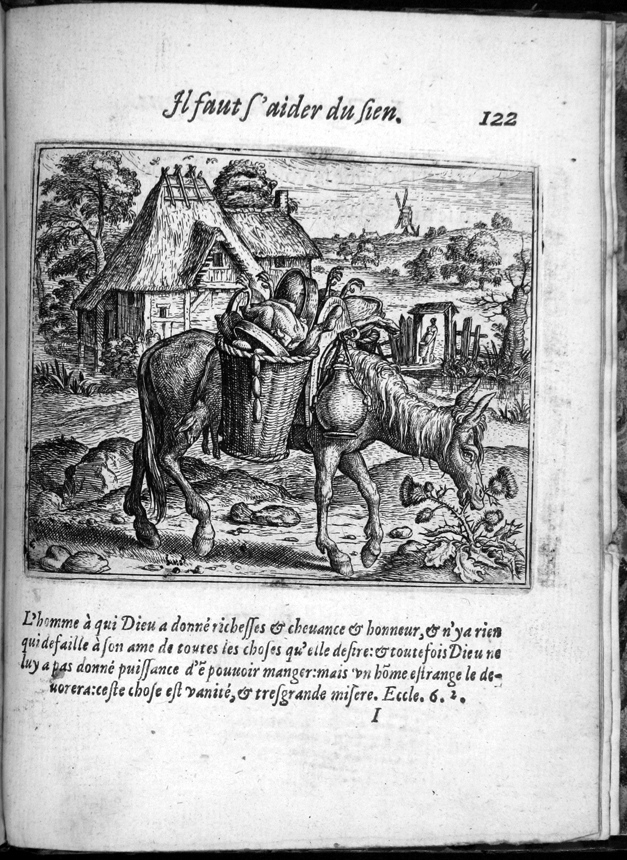 Il faut ſ'aider du ſien.
122
L'homme à qui Dieu a donné richeſſes & cheuance & honneur, & n'y a rien
qui defaille à ſon ame de toutes les choſes qu'elle deſire: & toutefois Dieu ne
luy a pas donné puiſſance d'ẽ pouuoir manger: mais vn hõme eſtrange le de-
uorera: ceſte choſe eſt vanité, & treſgrande miſere. Eccle. 6. 2.
I